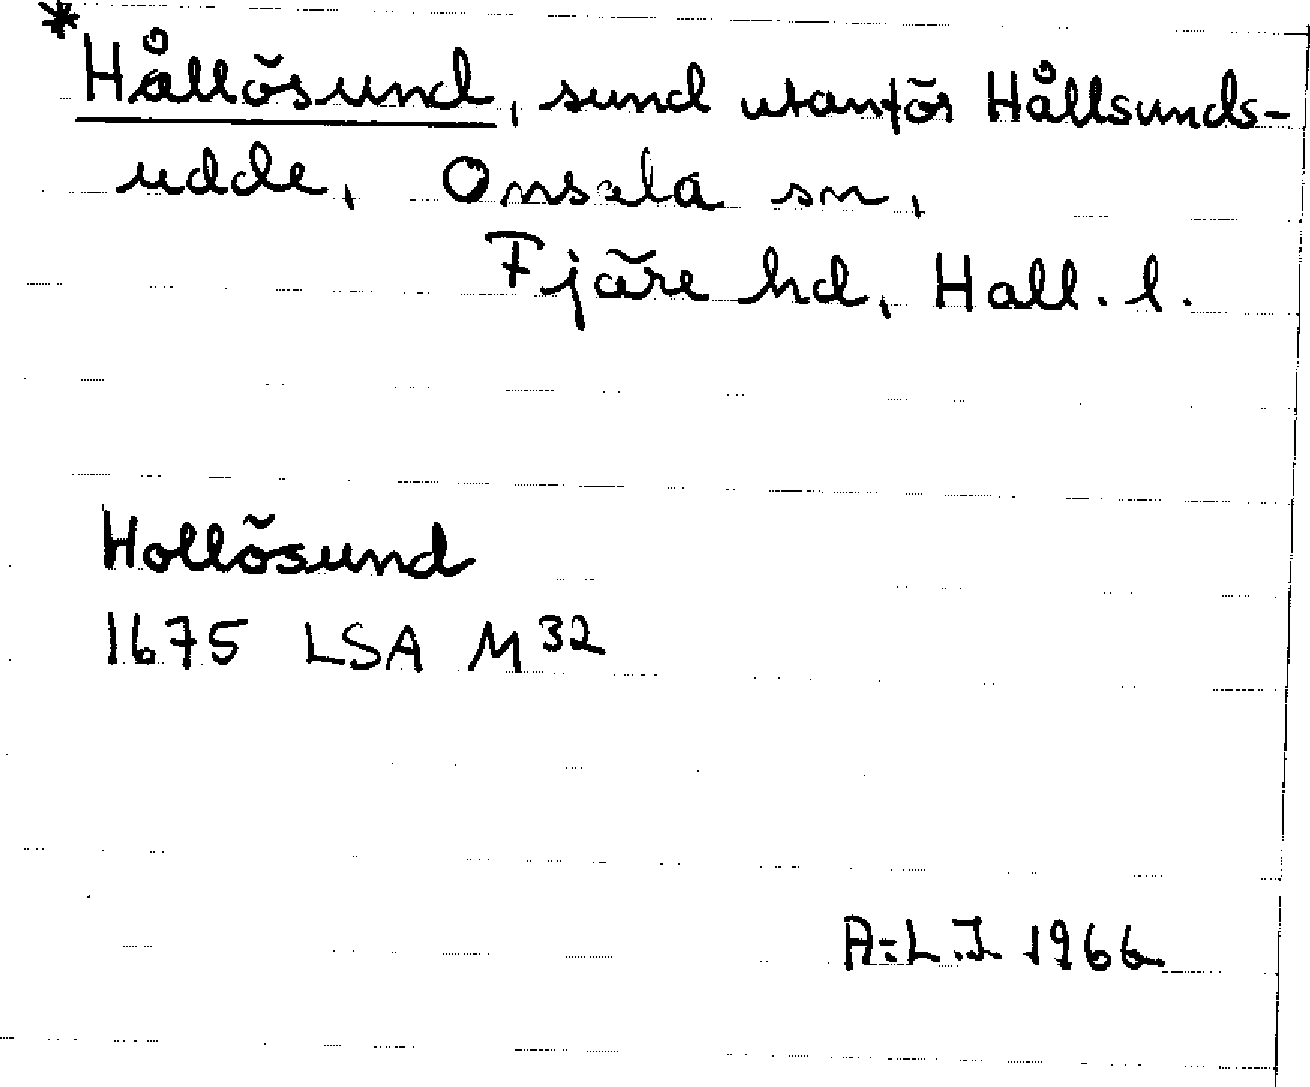 *Hållösund, sund utanför Hållsunds-
udde, Onsala sn,
Fjäre hd, Hall. l.
Hollösund
1675 LSA M32
A-L.J. 1966